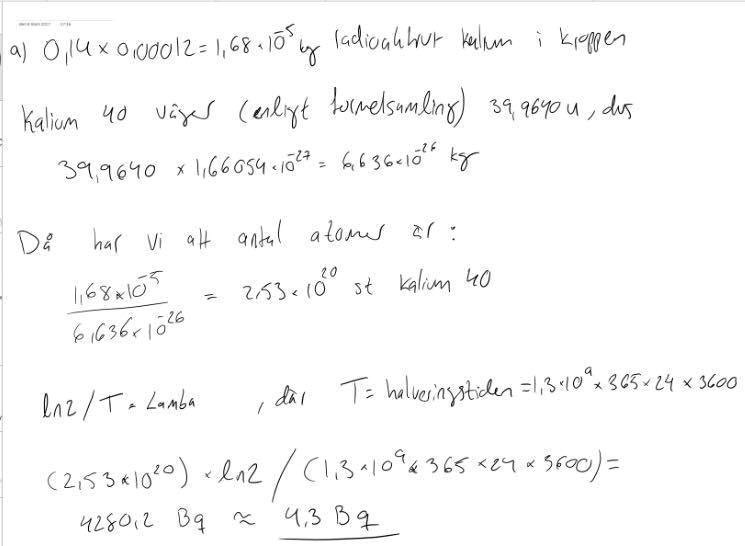 a) 0,14 × 0,00012 = 1,68 · 10⁻⁵ kg radioaktivt kalium i kroppen
Kalium 40 väger (enligt formelsamling) 39,9640 u, dvs
39,9640 × 1,66054 · 10⁻²⁷ = 6,636 · 10⁻²⁶ kg
Då har vi att antal atomer är :
1,68 × 10⁻⁵ / 6,636 × 10⁻²⁶ = 2,53 · 10²⁰ st kalium 40
ln2 / T = Lamba , där T = halveringstiden = 1,3 · 10⁹ × 365 × 24 × 3600
(2,53 × 10²⁰) · ln2 / (1,3 · 10⁹ × 365 × 24 × 3600) =
4280,2 Bq ≈ 4,3 Bq